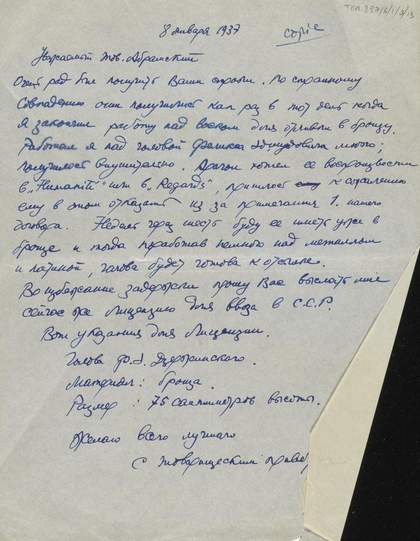 TGA 787/2/1/2/13
8 января 1937
copie
Уважаемый тов. Абрамский
Очень рад был получить Ваши строки. По странному
совпадению они получились как раз в тот день когда
я закончил работу над воском для отливки в бронзу.
Работал я над головой
получилось внушительно. хотел ее воспроизвести
в "Humanité" или в "Regards", пришлось к сожалению
ему в этом отказать из за примечания 1. нашего
договора. Недель через шесть буду ее иметь уже в
бронзе и тогда поработав немного над металлом
и патиной, голова будет готова к отсылке.
Во избежание задержки прошу Вас выслать мне
сейчас же Лицензию для ввоза в С.С.Р.
Вот указания для Лицензии.
Голова Ф. Э. Дзержинского.
Материал: бронза.
Размер: 75 сантиметров высоты.
Желаю всего лучшего
с товарищеским